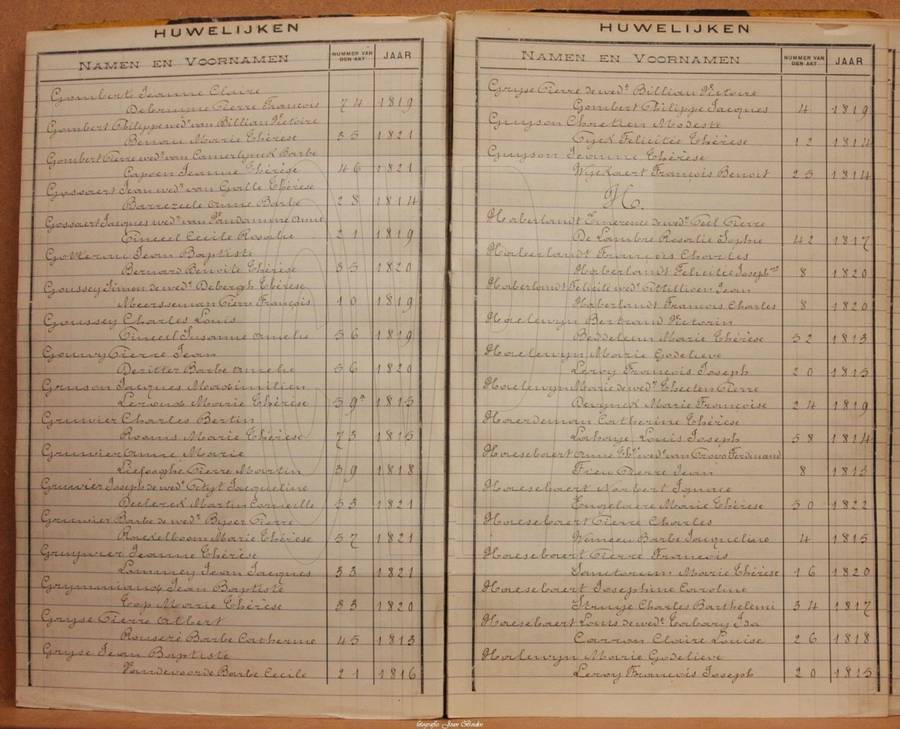 HUWELIJKEN
NAMEN EN VOORNAMEN NUMMER VAN DEN AKT JAAR
Gombert Jeanne Claire
Delerinne Pierre François 74 1819
Gombert Philippe wedr van Billian Victoire
Benau Marie Thérèse 35 1821
Gombert Pierre wedr van Camerlynck Barbe
Capoen Jeanne Thérèse 46 1821
Gossaert Jean wedr van Galle Thérèse
Barrezeele Anne Barbe 28 1814
Gossaert Jacques wedr van Vandamme Anne
Pinceel Cecile Rosalie 21 1819
Jean Baptiste
Bernard Benoite Thérèse 35 1820
Goussey Simon de wedr Debergh Thérèse
Meersseman Pierre François 10 1819
Goussey Charles Louis
Pinceel Susanne Amelie 56 1819
Gouwy Pierre Jean
Deritter Barbe Amelie 56 1820
Gruson Jacques Maximilien
Leroux Marie Thérèse 1815
Gruwier Charles Bertin
Rooms Marie Thérèse 73 1815
Gruwier Anne Marie
Liefooghe Pierre Martin 39 1818
Gruwier Joseph de wedr Petyt Jacqueline
Declerck Martin Corneille 53 1821
Gruwier Barbe de wedr Byser Pierre
Rouckelboom Marie Thérèse 57 1821
Gruywier Jeanne Thérèse
Lammey Jean Jacques 33 1821
Jean Baptiste
Top Marie Thérèse 33 1820
Gryse Pierre Albert
Rousere Barbe Catherine 45 1813
Gryse Jean Baptiste
Vandevoorde Barbe Cecile 21 1816
HUWELIJKEN
NAMEN EN VOORNAMEN NUMMER VAN DEN AKT JAAR
Gryse Pierre de wedr Billian Victoire
Gombert Philippe Jacques 4 1819
Guyson Chretien Modeste
Felicité Thérèse 12 1814
Guyson Jeanne Thérèse
Wyckaert François Benoit 25 1814
H.
Haberlandt Emerence de wedr Peel Pierre
De Lambre Rosalie Sophie 42 1817
Haberlandt François Charles
Haberlandt Felicité Josephne 8 1820
Haberlandt Felicité wedr Jean
Haberlandt François Charles 8 1820
Haelewyn Bertrand Victorin
Beddeleim Marie Thérèse 32 1813
Haelewyn Marie Godelieve
Leroy François Joseph 20 1815
Haelewyn Marie de wedr Theeten Pierre
Devynck Marie Françoise 24 1819
Haerdeman Catherine Thérèse
Lahaye Louis Joseph 58 1814
Haesebaert Anne wedr van Crovo Ferdinand
Frew Pierre Jean 8 1815
Haesebaert Norbert Ignace
Engelaere Marie Thérèse 30 1822
Haesebaert Pierre Charles
Winseu Barbe Jacqueline 4 1815
Haesebaert Pierre François
Sanctorum Marie Thérèse 16 1820
Haesebaert Josephine Caroline
Struye Charles Barthelemi 34 1817
Haesebaert Louis de wedr Tabary Ida
Carron Claire Louise 26 1818
Halewyn Marie Godelieve
Leroy François Joseph 20 1815